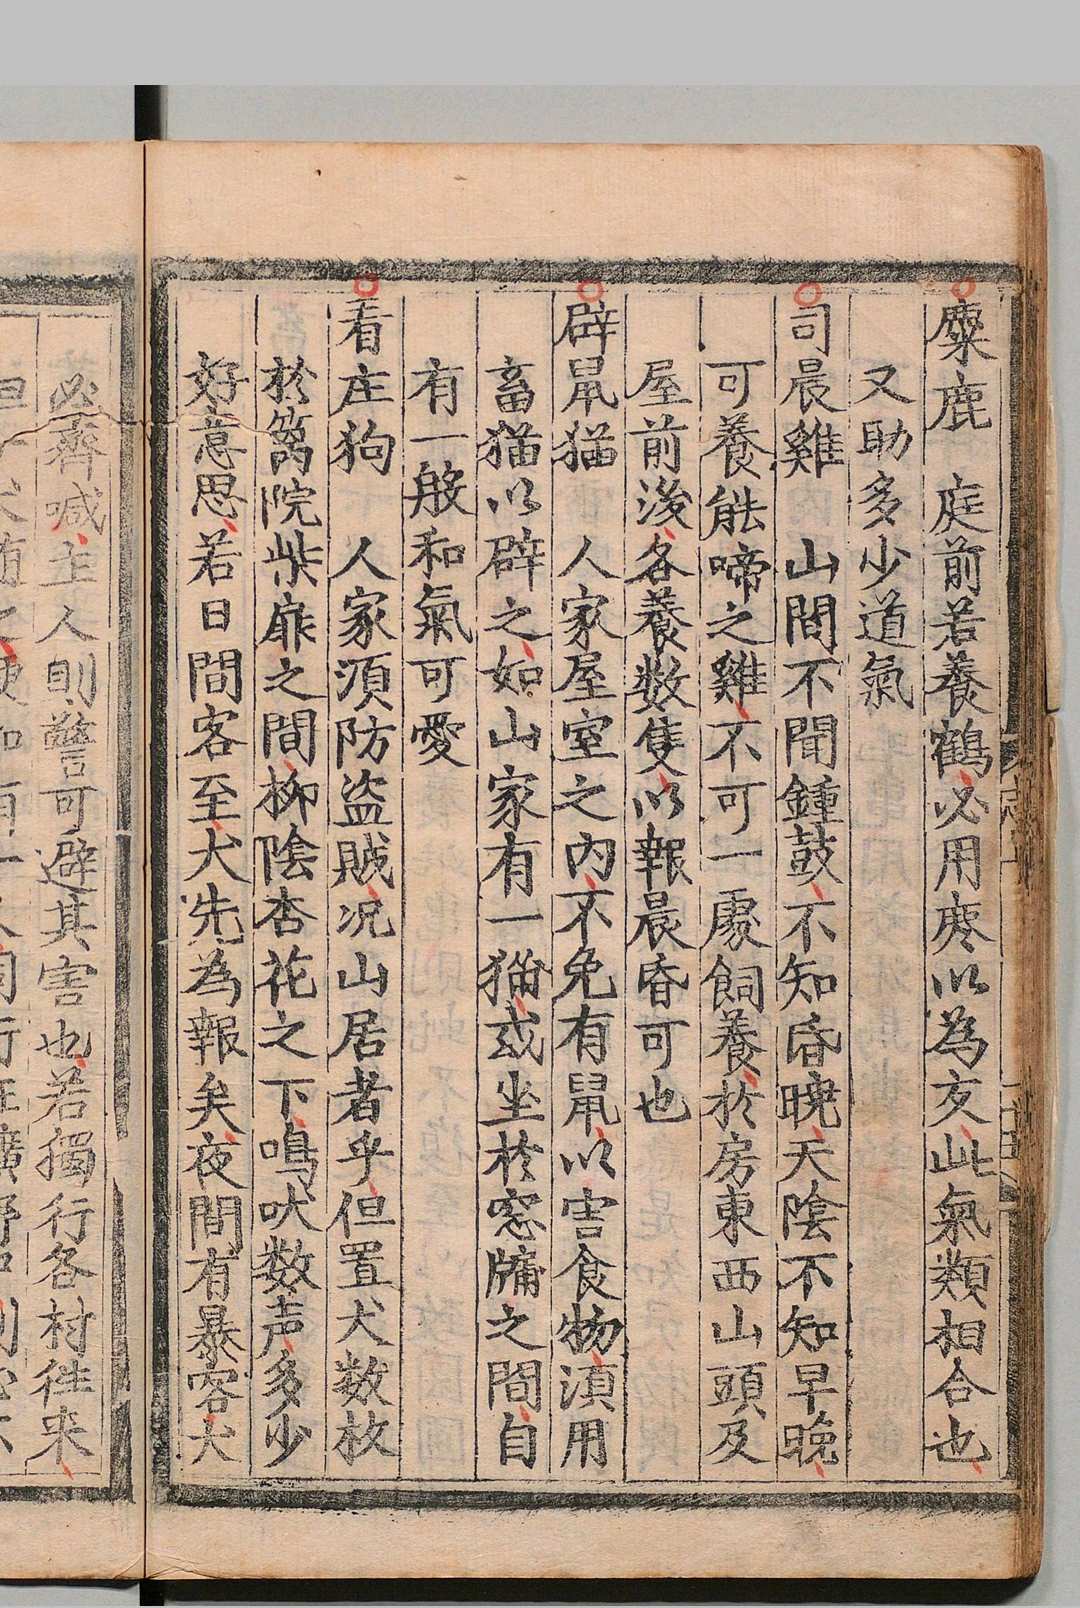 麋鹿　庭前若養鶴必用麋以為友此氣類相合也
又助多少道氣
司晨雞　山間不聞鍾鼓不知昏晚天陰不知早晚
可養能啼之雞不可一處飼養於房東西山頭及
屋前後各養数隻以報晨昏可也
辟鼠猫　人家屋室之內不免有鼠以害食物湏用
畜猫以辟之如山家有一猫或坐於窓牖之間自
有一般和氣可愛
看庄狗　人家湏防盗賊况山居者乎但置犬数枚
於篱院柴扉之間柳陰杏花之下鳴吠数声多少
好意思若日間客至犬先為報矣夜間有暴客犬
必齊喊主人則警可避其害也若獨行各村徃来